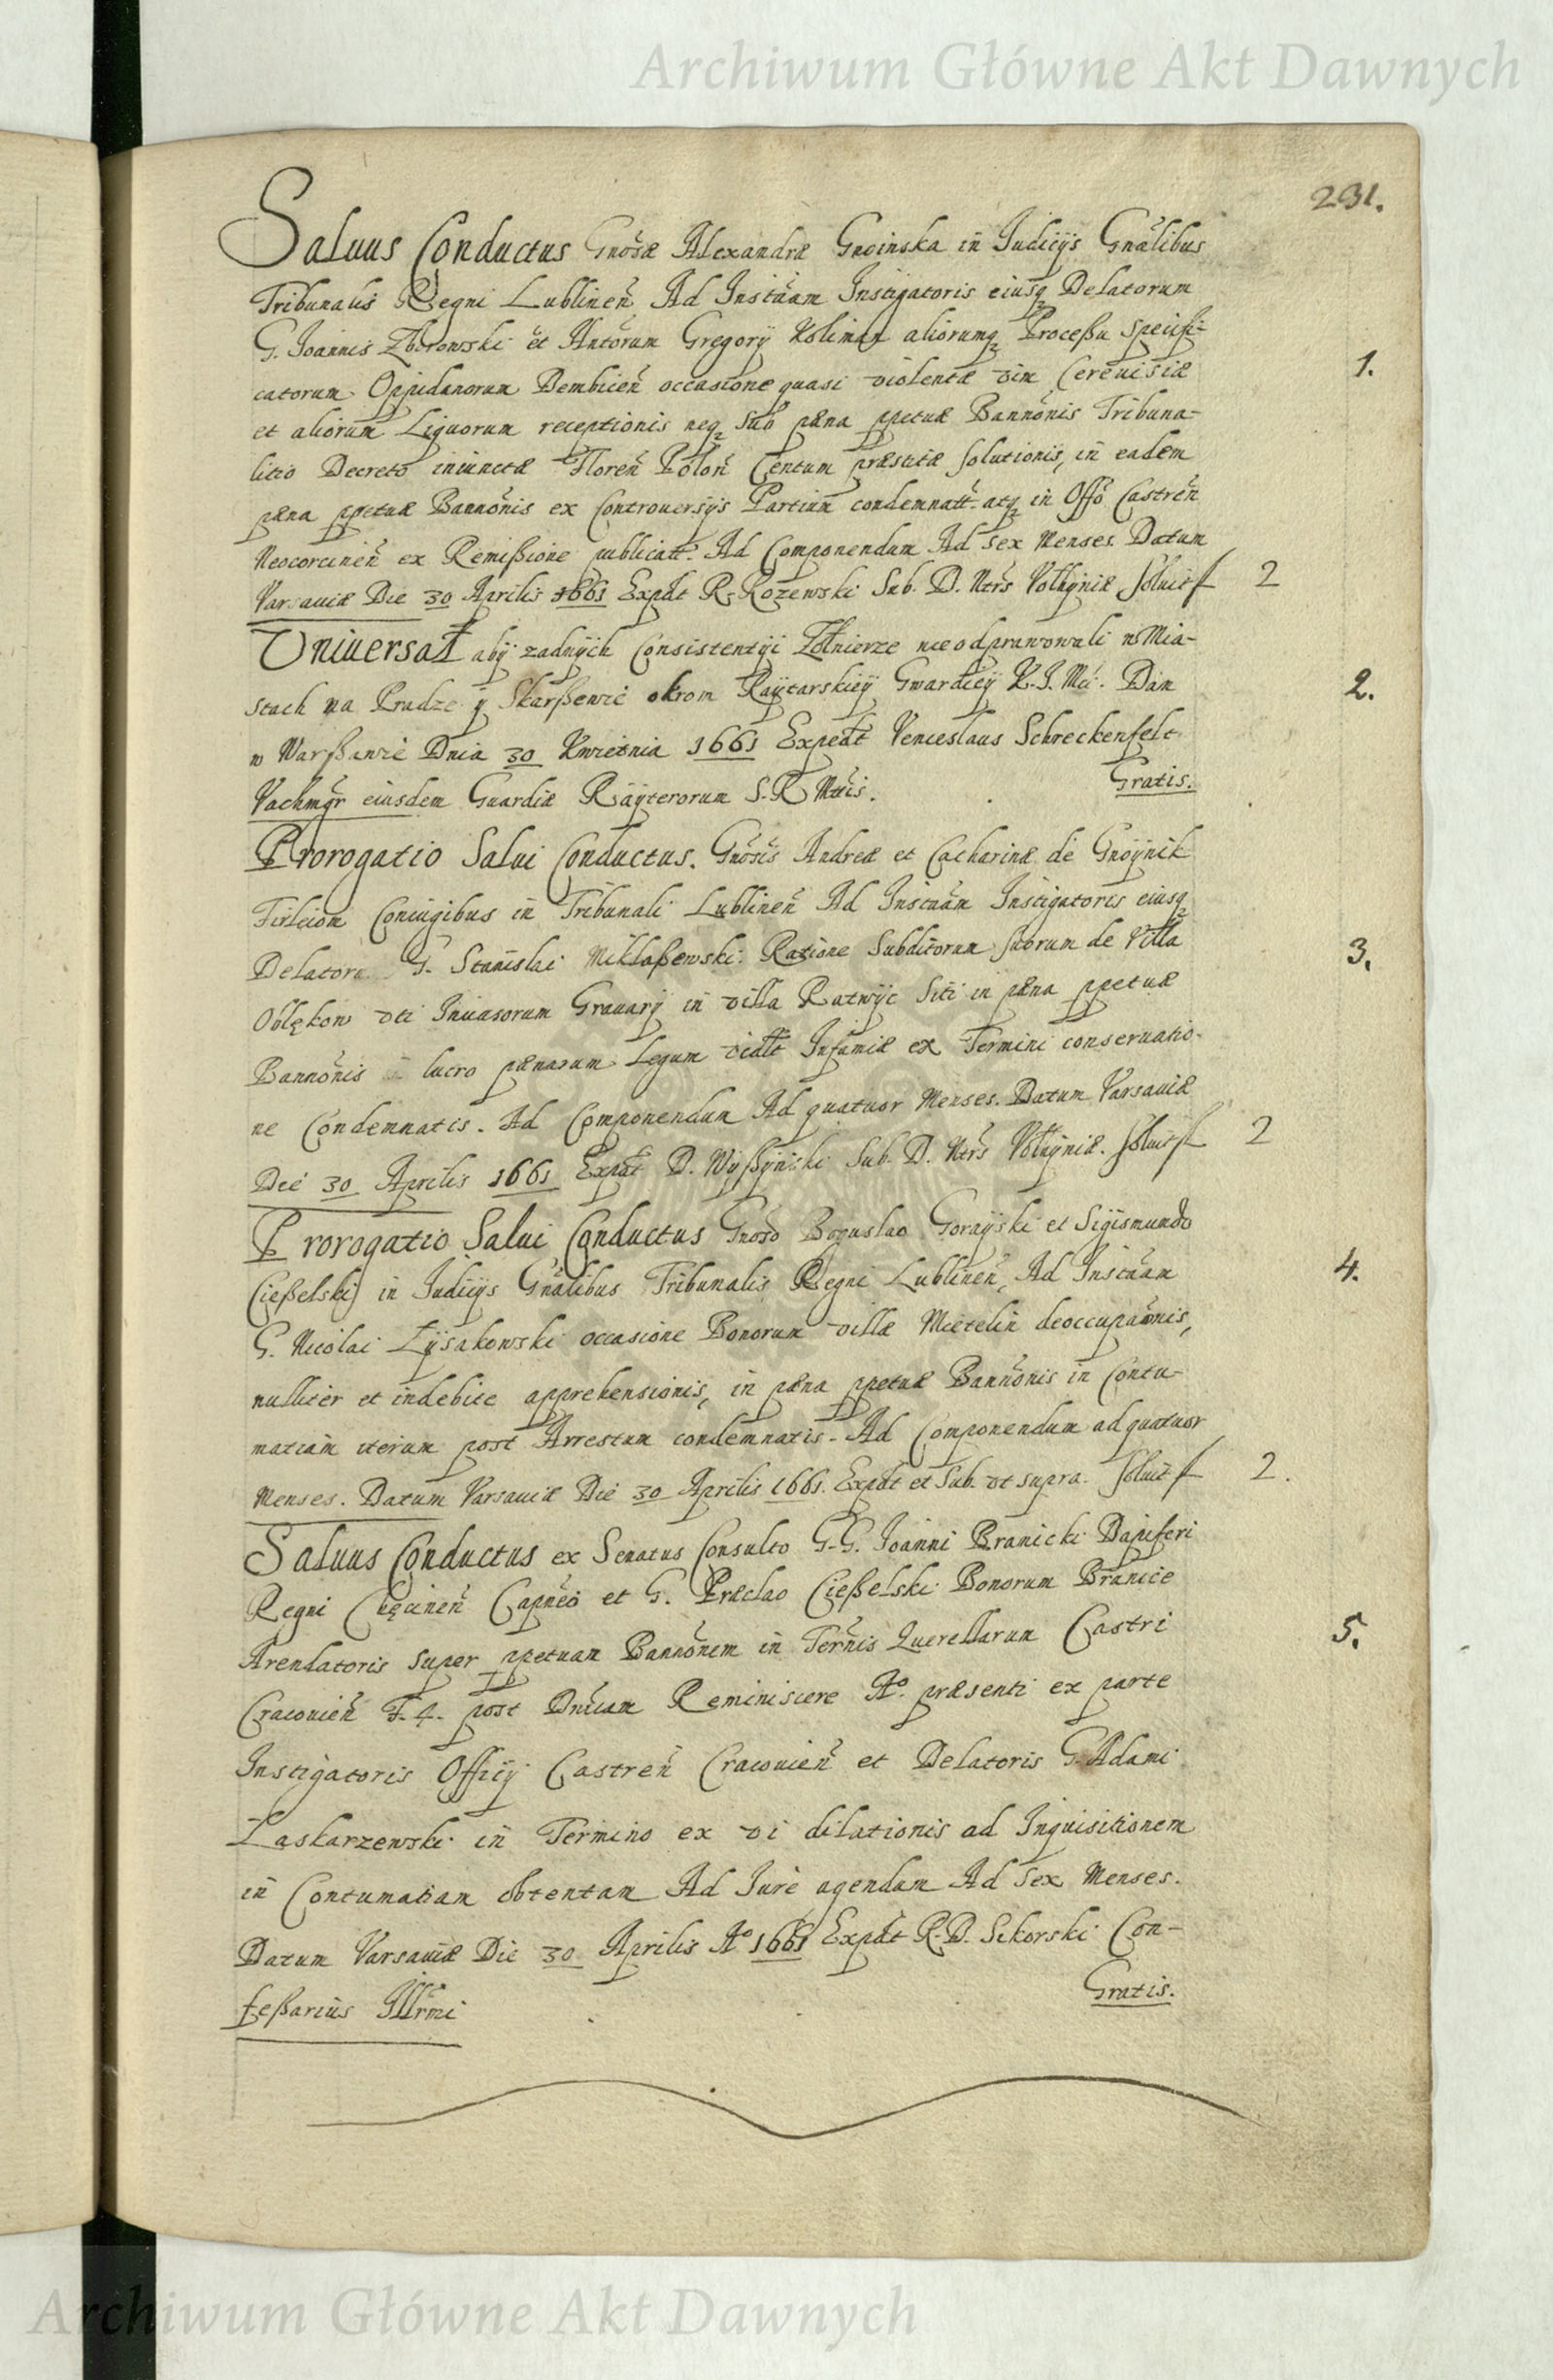 Archiwum Główne Akt Dawnych
231.
Saluus Conductus Gnosæ Alexandræ Gnoinska in Iudicijs Gnalibus
Tribunalis Regni Lublinen Ad Instnam Instigatoris eiusq Delatorum
G. Ioannis Zborowski et Actorum Gregorij aliorumq Proceßu specifi-
catorum Oppidanorum Dembicen occasione quasi violentæ vini Cereuisiæ
1.
et aliorum Liquorum receptionis neq Sub pæna ppetuæ Bannonis Tribuna-
litio Decreto iniunctæ Floren Polon Centum præstitæ solutionis, in eadem
pæna ppetuæ Bannonis ex Controuersijs Partium condemnatt. atq in Offo Castren
Neocorcinen ex Remißione publicatt. Ad Componendum Ad Sex Menses. Datum
Varsauiæ Die 30 Aprilis 1661 Expdt R. Rozewski Sub. D. Ntrs Volhyniæ Soluit f 2
Uniuersał abÿ zadnÿch Consistentÿi Zołnierze nie odprawowali w Mia-
stach na Pradze ÿ Skarßewie okrom Raÿtarskieÿ Gwardieÿ K. J. Mci. Dan
2.
w Warßawie Dnia 30 Kwietnia 1661 Expedt Venceslaus Schreckenfelt
Vachmgr eiusdem Guardiæ Raÿterorum S. R. Mttis. Gratis.
Prorogatio Salui Conductus. Gnosis Andreæ et Catharinæ de Gnoÿnik
Firleiom Coniugibus in Tribunali Lublinen Ad Instnam Instigatoris eiusq
Delatoru G. Stanislai Miklaßewski. Ratione Subditorum suorum de Villa
3.
Oblękow vti Inuasorum Granarij in villa Ratwÿc siti in pæna ppetuæ
Bannonis lucro pænarum Legum vidlt Infamiæ ex Termini conseruatio-
ne Condemnatis. Ad Componendum Ad quatuor Menses. Datum Varsauiæ
Die 30 Aprilis 1661 Expdt D. Wÿßÿnski Sub. D. Ntrs Volhyniæ. Soluit f 2
Prorogatio Salui Conductus Gnoso Boguslao Goraÿski et Sigismundo
Cießelski in Iudicijs Gnalibus Tribunalis Regni Lublinen, Ad Instnam
4.
G. Nicolai Łÿsakowski occasione Bonorum villæ Mietelin deoccupaonis,
nulliter et indebite apprehensionis, in pæna ppetuæ Bannonis in Contu-
matiam iterum post Arrestum condemnatis. Ad Componendum ad quatuor
Menses. Datum Varsauiæ Die 30 Aprilis 1661. Expdt et Sub. vt supra. Soluit f 2.
Saluus Conductus ex Senatus Consulto G. G. Ioanni Branicki Dapiferi
Regni Chęcinen Capneo et G. Præclao Cießelski Bonorum Branice
Arendatoris super ppetuam Bannonem in Ternis Querellarum Castri
5.
Cracouien F. 4. post Dnicam Reminiscere Ao. præsenti ex parte
Instigatoris Officij Castren Cracouien et Delatoris G. Adami
Laskarzewski in Termino ex vi dilationis ad Inquisitionem
in Contumatiam obtentam Ad Iure agendum Ad Sex Menses.
Datum Varsauiæ Die 30 Aprilis Ao 1661 Expdt R. D. Sikorski Con-
feßarius Illrmi Gratis.
Archiwum Główne Akt Dawnych